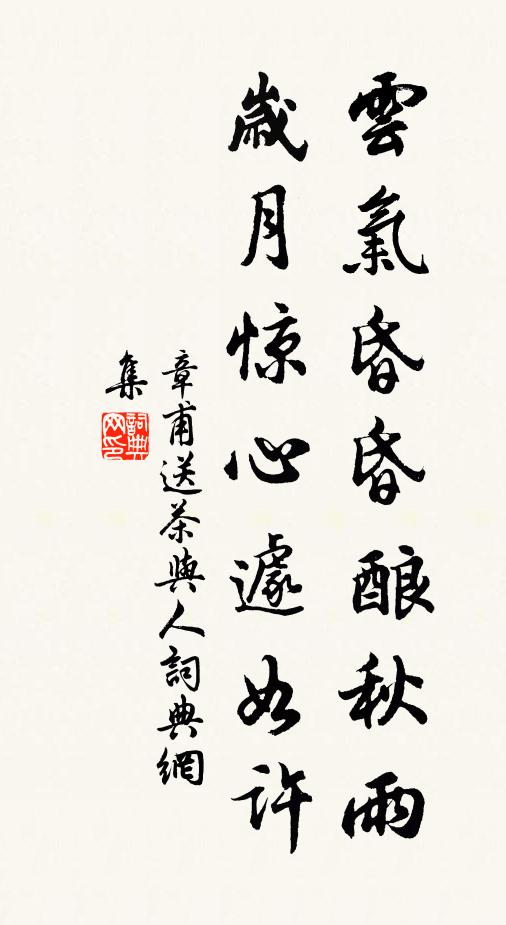 雲氣昏昏酿秋雨
歲月惊心遽如许
章甫送茶與人詞典網
集
詞典网印